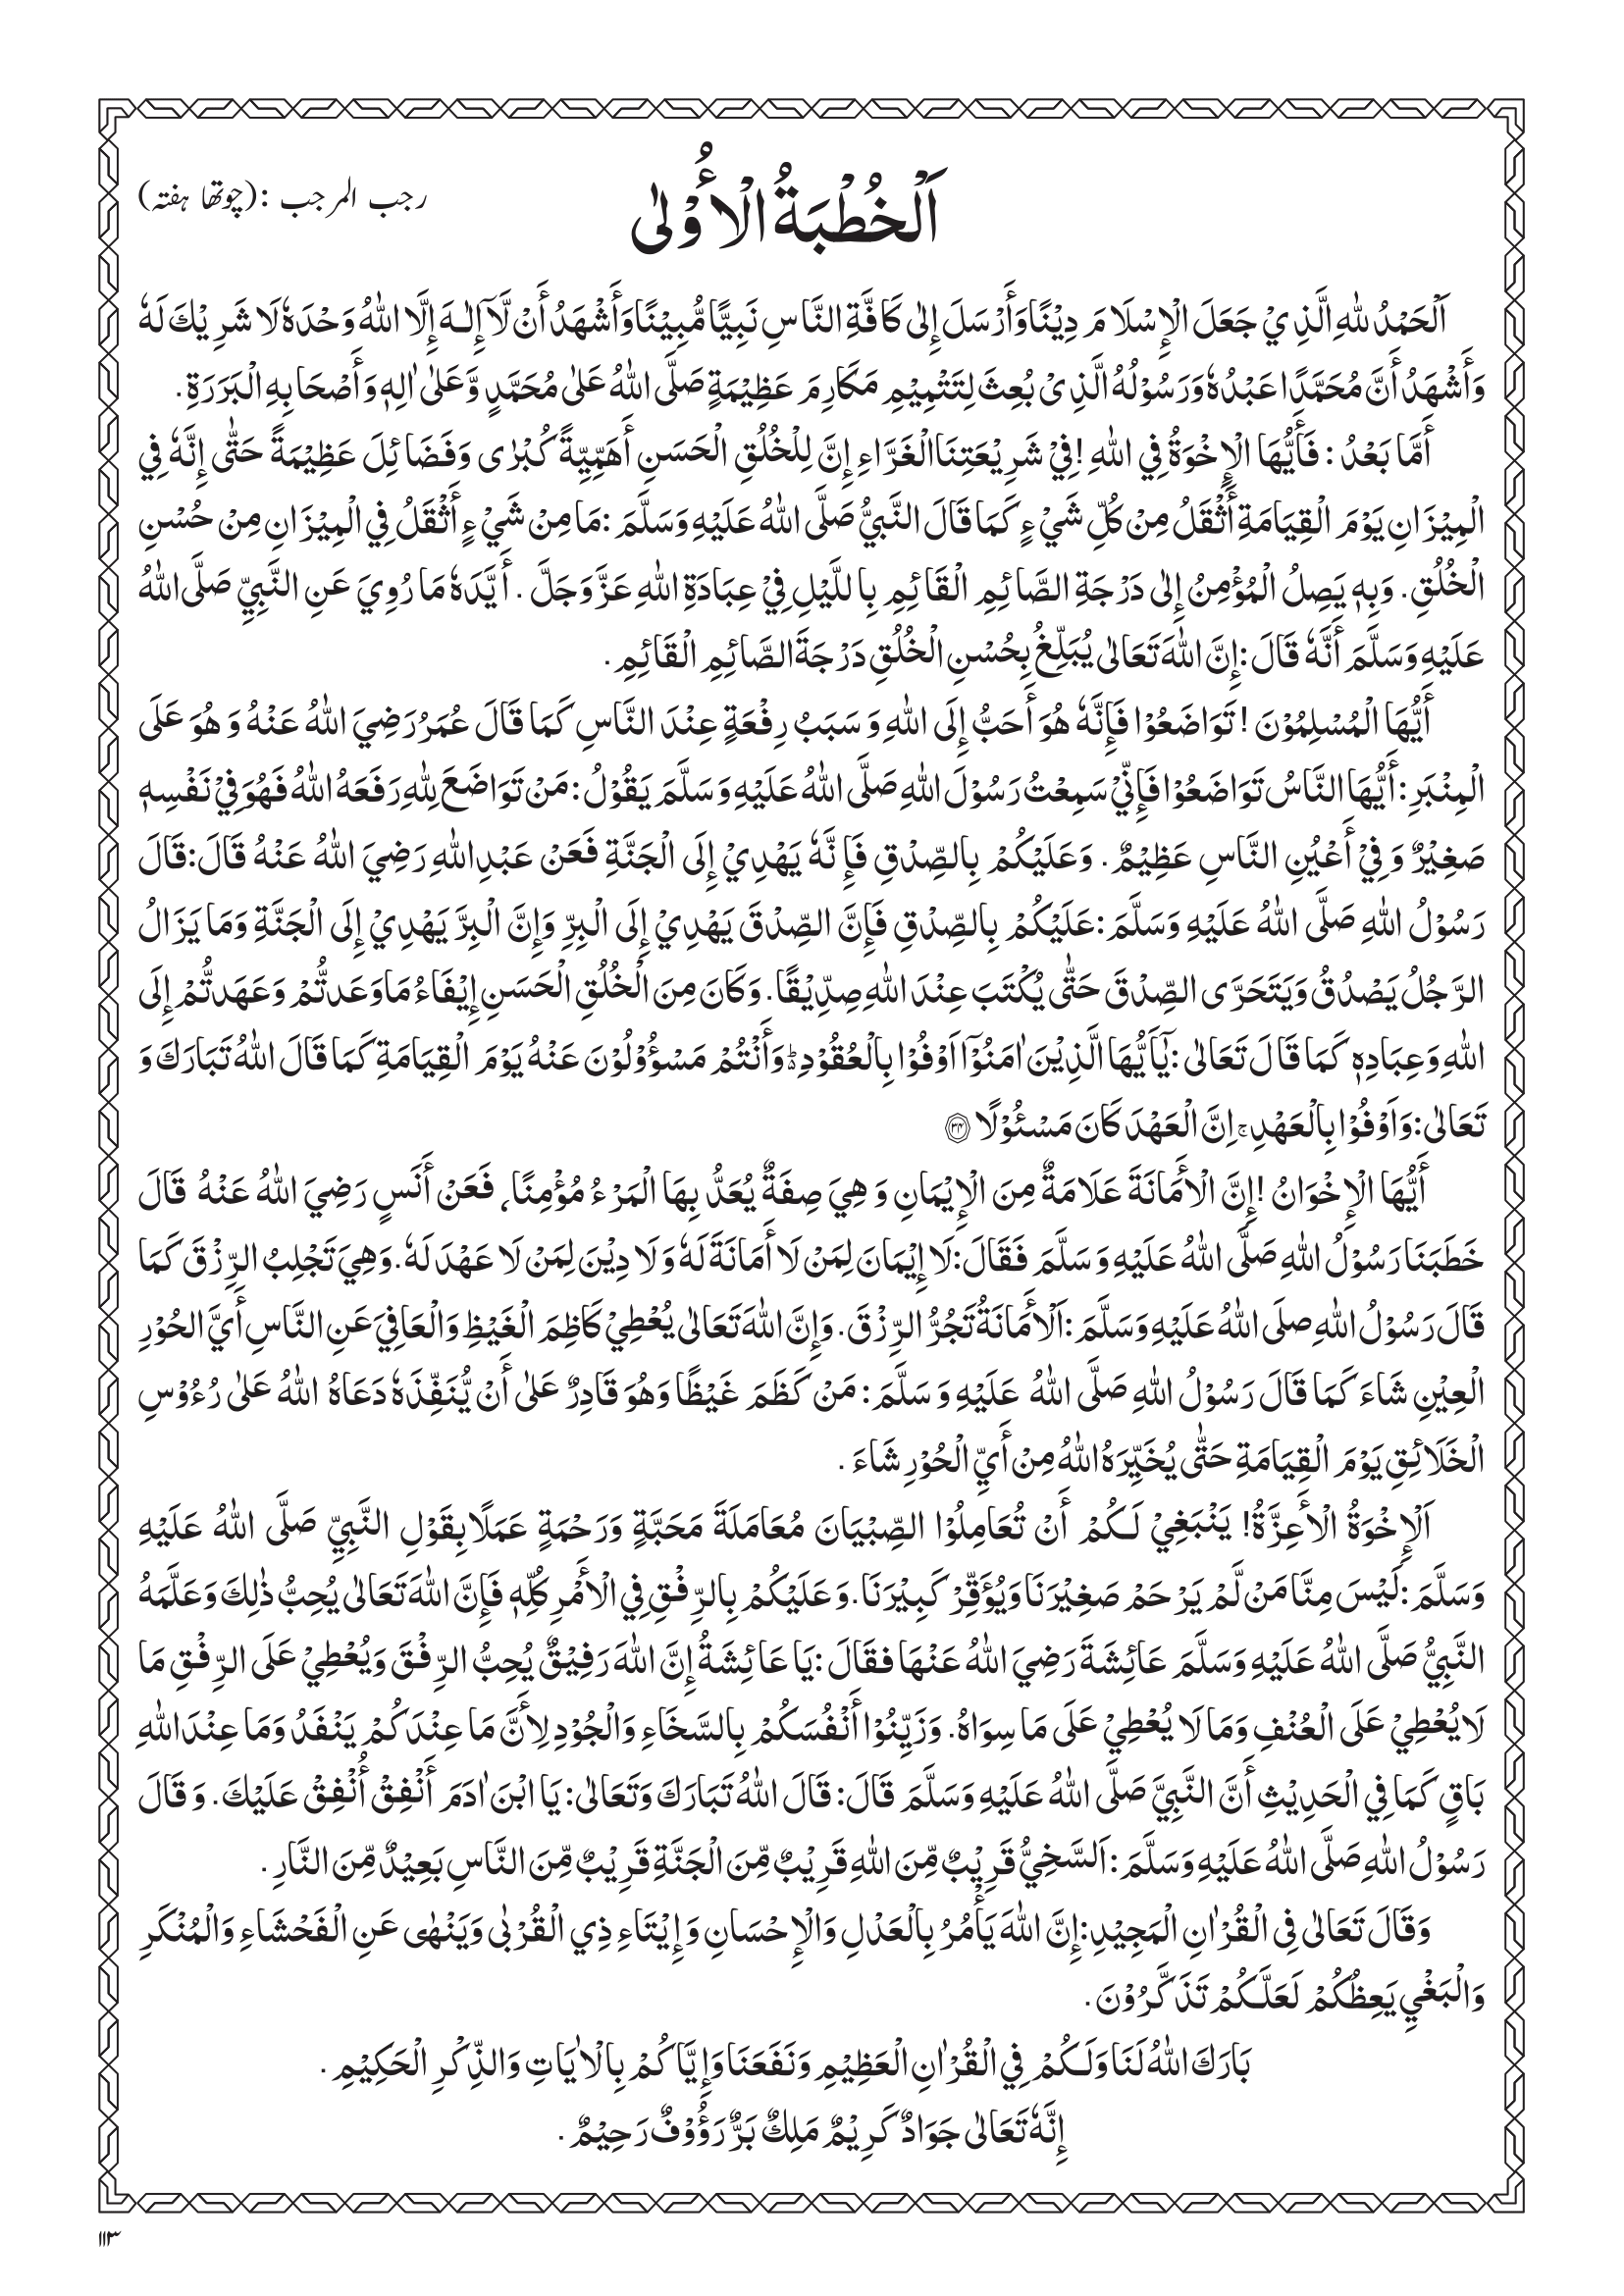 اَلْخُطْبَةُ الْأُوْلٰى
رجب المرجب :(چوتھا ہفتہ)
اَلْحَمْدُ لِلّٰهِ الَّذِيْ جَعَلَ الْإِسْلَامَ دِيْنًا وَأَرْسَلَ إِلٰى كَافَّةِ النَّاسِ نَبِيًّا مُّبِيْنًا وَأَشْهَدُ أَنْ لَّآ إِلٰـهَ إِلَّا اللّٰهُ وَحْدَهٗ لَا شَرِيْكَ لَهٗ
وَأَشْهَدُ أَنَّ مُحَمَّدًا عَبْدُهٗ وَرَسُوْلُهُ الَّذِىْ بُعِثَ لِتَتْمِيْمِ مَكَارِمَ عَظِيْمَةٍ صَلَّى اللّٰهُ عَلٰى مُحَمَّدٍ وَّعَلٰى اٰلِهٖ وَأَصْحَابِهِ الْبَرَرَةِ.
أَمَّا بَعْدُ : فَأَيُّهَا الْإِخْوَةُ فِي اللّٰهِ !فِيْ شَرِيْعَتِنَا الْغَرَّاءِ إِنَّ لِلْخُلُقِ الْحَسَنِ أَهَمِّيَّةً كُبْرٰى وَفَضَائِلَ عَظِيْمَةً حَتّٰى إِنَّهٗ فِي
الْمِيْزَانِ يَوْمَ الْقِيَامَةِ أَثْقَلُ مِنْ كُلِّ شَيْءٍ كَمَا قَالَ النَّبِيُّ صَلَّى اللّٰهُ عَلَيْهِ وَسَلَّمَ :مَا مِنْ شَيْءٍ أَثْقَلُ فِي الْمِيْزَانِ مِنْ حُسْنِ
الْخُلُقِ. وَبِهٖ يَصِلُ الْمُؤْمِنُ إِلٰى دَرْجَةِ الصَّائِمِ الْقَائِمِ بِاللَّيْلِ فِيْ عِبَادَةِ اللّٰهِ عَزَّوَجَلَّ . أَيَّدَهٗ مَا رُوِيَ عَنِ النَّبِيِّ صَلَّى اللّٰهُ
عَلَيْهِ وَسَلَّمَ أَنَّهٗ قَالَ :إِنَّ اللّٰهَ تَعَالٰى يُبَلِّغُ بِحُسْنِ الْخُلُقِ دَرْجَةَ الصَّائِمِ الْقَائِمِ.
أَيُّهَا الْمُسْلِمُوْنَ ! تَوَاضَعُوْا فَإِنَّهٗ هُوَ أَحَبُّ إِلَى اللّٰهِ وَ سَبَبُ رِفْعَةٍ عِنْدَ النَّاسِ كَمَا قَالَ عُمَرُ رَضِيَ اللّٰهُ عَنْهُ وَ هُوَ عَلَى
الْمِنْبَرِ :أَيُّهَا النَّاسُ تَوَاضَعُوْا فَإِنِّيْ سَمِعْتُ رَسُوْلَ اللّٰهِ صَلَّى اللّٰهُ عَلَيْهِ وَسَلَّمَ يَقُوْلُ :مَنْ تَوَاضَعَ لِلّٰهِ رَفَعَهُ اللّٰهُ فَهُوَ فِيْ نَفْسِهٖ
صَغِيْرٌ وَ فِيْ أَعْيُنِ النَّاسِ عَظِيْمٌ. وَعَلَيْكُمْ بِالصِّدْقِ فَإِنَّهٗ يَهْدِيْ إِلَى الْجَنَّةِ فَعَنْ عَبْدِاللّٰهِ رَضِيَ اللّٰهُ عَنْهُ قَالَ:قَالَ
رَسُوْلُ اللّٰهِ صَلَّى اللّٰهُ عَلَيْهِ وَسَلَّمَ :عَلَيْكُمْ بِالصِّدْقِ فَإِنَّ الصِّدْقَ يَهْدِيْ إِلَى الْبِرِّ وَإِنَّ الْبِرَّ يَهْدِيْ إِلَى الْجَنَّةِ وَمَا يَزَالُ
الرَّجُلُ يَصْدُقُ وَيَتَحَرَّى الصِّدْقَ حَتّٰى يُكْتَبَ عِنْدَ اللّٰهِ صِدِّيْقًا. وَكَانَ مِنَ الْخُلُقِ الْحَسَنِ إِيْفَاءُ مَا وَعَدتُّمْ وَعَهَدتُّمْ إِلَى
اللّٰهِ وَعِبَادِهٖ كَمَا قَالَ تَعَالٰى :يٰٓاَيُّهَا الَّذِيْنَ اٰمَنُوْٓا اَوْفُوْا بِالْعُقُوْدِؕ وَأَنْتُمْ مَسْؤُوْلُوْنَ عَنْهُ يَوْمَ الْقِيَامَةِ كَمَا قَالَ اللّٰهُ تَبَارَكَ وَ
تَعَالٰى:وَاَوْفُوْا بِالْعَهْدِۚ اِنَّ الْعَهْدَ كَانَ مَسْئُوْلًا ۝۳۴
أَيُّهَا الْإِخْوَانُ !إِنَّ الْأَمَانَةَ عَلَامَةٌ مِنَ الْإِيْمَانِ وَ هِيَ صِفَةٌ يُعَدُّ بِهَا الْمَرْءُ مُؤْمِنًا، فَعَنْ أَنَسٍ رَضِيَ اللّٰهُ عَنْهُ قَالَ
خَطَبَنَا رَسُوْلُ اللّٰهِ صَلَّى اللّٰهُ عَلَيْهِ وَسَلَّمَ فَقَالَ:لَا إِيْمَانَ لِمَنْ لَا أَمَانَةَ لَهٗ وَلَا دِيْنَ لِمَنْ لَا عَهْدَ لَهٗ.وَهِيَ تَجْلِبُ الرِّزْقَ كَمَا
قَالَ رَسُوْلُ اللّٰهِ صلَى اللّٰهُ عَلَيْهِ وَسَلَّمَ :اَلْأَمَانَةُ تَجُرُّ الرِّزْقَ. وَإِنَّ اللّٰهَ تَعَالٰى يُعْطِيْ كَاظِمَ الْغَيْظِ وَالْعَافِيَ عَنِ النَّاسِ أَيَّ الْحُوْرِ
الْعِيْنِ شَاءَ كَمَا قَالَ رَسُوْلُ اللّٰهِ صَلَّى اللّٰهُ عَلَيْهِ وَسَلَّمَ : مَنْ كَظَمَ غَيْظًا وَهُوَ قَادِرٌ عَلٰى أَنْ يُّنَفِّذَهٗ دَعَاهُ اللّٰهُ عَلٰى رُءُوْسِ
الْخَلَائِقِ يَوْمَ الْقِيَامَةِ حَتّٰى يُخَيِّرَهُ اللّٰهُ مِنْ أَيِّ الْحُوْرِ شَاءَ .
اَلْإِخْوَةُ الْأَعِزَّةُ! يَنْبَغِيْ لَـكُمْ أَنْ تُعَامِلُوْا الصِّبْيَانَ مُعَامَلَةَ مَحَبَّةٍ وَرَحْمَةٍ عَمَلًا بِقَوْلِ النَّبِيِّ صَلَّى اللّٰهُ عَلَيْهِ
وَسَلَّمَ :لَيْسَ مِنَّا مَنْ لَّمْ يَرْحَمْ صَغِيْرَنَا وَيُؤَقِّرْ كَبِيْرَنَا.وَعَلَيْكُمْ بِالرِّفْقِ فِي الْأَمْرِ كُلِّهٖ فَإِنَّ اللّٰهَ تَعَالٰى يُحِبُّ ذٰلِكَ وَعَلَّمَهُ
النَّبِيُّ صَلَّى اللّٰهُ عَلَيْهِ وَسَلَّمَ عَائِشَةَ رَضِيَ اللّٰهُ عَنْهَا فقَالَ :يَا عَائِشَةُ إِنَّ اللّٰهَ رَفِيْقٌ يُحِبُّ الرِّفْقَ وَيُعْطِيْ عَلَى الرِّفْقِ مَا
لَا يُعْطِيْ عَلَى الْعُنْفِ وَمَا لَا يُعْطِيْ عَلَى مَا سِوَاهُ. وَزَيِّنُوْا أَنْفُسَكُمْ بِالسَّخَاءِ وَالْجُوْدِ لِأَنَّ مَا عِنْدَكُمْ يَنْفَدُ وَمَا عِنْدَ اللّٰهِ
بَاقٍ كَمَا فِي الْحَدِيْثِ أَنَّ النَّبِيَّ صَلَّى اللّٰهُ عَلَيْهِ وَسَلَّمَ قَالَ: قَالَ اللّٰهُ تَبَارَكَ وَتَعَالٰى: يَا ابْنَ اٰدَمَ أَنْفِقْ أُنْفِقْ عَلَيْكَ. وَ قَالَ
رَسُوْلُ اللّٰهِ صَلَّى اللّٰهُ عَلَيْهِ وَسَلَّمَ : اَلسَّخِيُّ قَرِيْبٌ مِّنَ اللّٰهِ قَرِيْبٌ مِّنَ الْجَنَّةِ قَرِيْبٌ مِّنَ النَّاسِ بَعِيْدٌ مِّنَ النَّارِ.
وَقَالَ تَعَالٰى فِى الْقُرْاٰنِ الْمَجِيْدِ:إِنَّ اللّٰهَ يَأْمُرُ بِالْعَدْلِ وَالْإِحْسَانِ وَإِيْتَاءِ ذِي الْقُرْبٰى وَيَنْهٰى عَنِ الْفَحْشَاءِ وَالْمُنْكَرِ
وَالْبَغْيِ يَعِظُكُمْ لَعَلَّـكُمْ تَذَكَّرُوْنَ.
بَارَكَ اللّٰهُ لَنَا وَلَـكُمْ فِي الْقُرْاٰنِ الْعَظِيْمِ وَنَفَعَنَا وَإِيَّاكُمْ بِالْاٰيَاتِ وَالذِّكْرِ الْحَكِيْمِ.
إِنَّهٗ تَعَالٰى جَوَادٌ كَرِيْمٌ مَلِكٌ بَرٌّ رَؤُوْفٌ رَحِيْمٌ.
۱۱۳